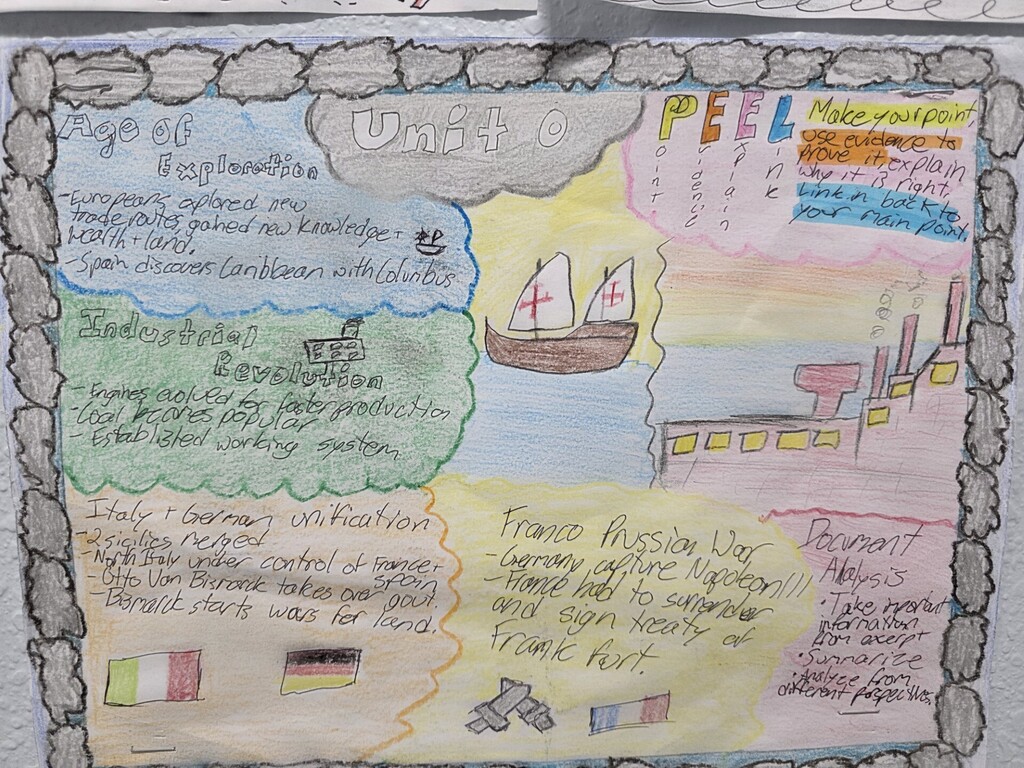 Unit 0
Age of
Exploration
- Europeans explored new
trade routes, gained new knowledge +
wealth + land.
- Spain discovers Caribbean with Columbus
Industrial
Revolution
- Engines evolved for faster production
- Coal becomes popular
- Established working system
Italy + German unification
- 2 sicilies merged
- North Italy under control of France +
spain
- Otto Von Bismarck takes over gout.
- Bismarck starts wars for land.
PEEL
Point
Evidence
Explain
Link
Make your point,
use evidence to
prove it, explain
why it is right,
Link in back to
your main point.
Franco Prussian War
- Germany capture Napoleon III
- France had to surrender
and sign treaty of
Frankfort.
Document
Analysis
• Take important
information
from exerpt
• Summarize
• Analyze from
different perspectives.